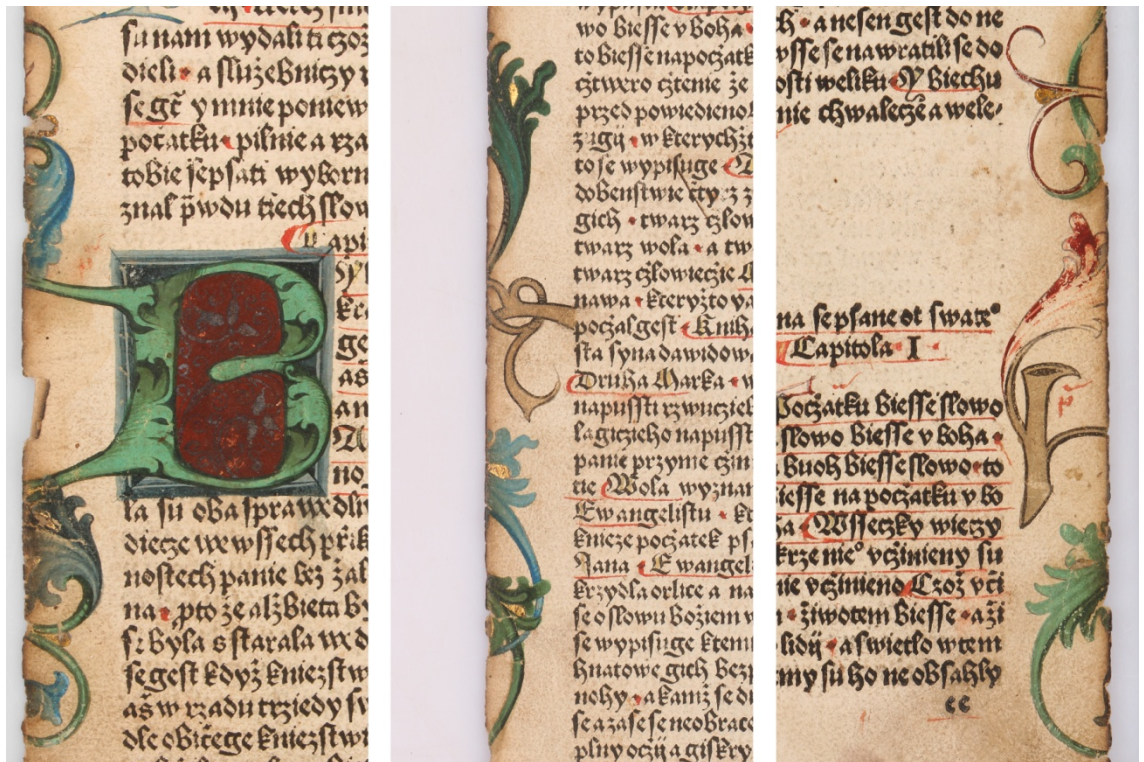 su nam wydali ti czoz
dieli · a služebniczy
se gt̃ y mnie poniew
počatku · pilnie a rza
tobie sepsati wyborn
znal p̃wdu tiech slow
Capi
ge
as
an
no
la su oba sprawedli
diecze we wssech přik
nostech panie bez žal
na · pto že alžbieta by
byla a starala we d
se gest kdyz kniezstw
as w rzadu trziedy sv
dle običege kniezstwi
wo biesse v boha ·
to biesse napočatk
cžtwero cžtenie že
przed powiedieno
z rgij · w kterychž
to se wypisuge
dobenstwie čtyrz z
gich · twarz czlow
twarz wola · a tw
twarz cžlowieczie
nawa · kteryžto ya
počal gest · Knih
sta syna dawidow
Druha Marka · w
napussti rzwuczieh
la giczieho napusst
panie przyme czin
tie Wola wyznam
Ewangelistu · kt
knieze počatek ps
Jana · Ewangel
krzydla orlice a na
se o slowu božiem
se wypisuge ktem
hnatowe gich bezp
nohy · a kamž se du
se a zase se neobrace
plny oczij a giskry
h · a nesen gest do ne
wsse se nawratili se do
osti weliku · Y biechu
nie chwalecze a wele-
na se psane ot swate°
Capitola · I ·
Počatku biesse slowo
slowo biesse v boha ·
buoh biesse slowo · to
biesse na počatku v bo
ha · Wsseczky wieczy
krze nie° vcžinieny su
nie vcžinieno Czož vči
· žiwotem biesse · a ži
lidij · a swietlo w tem
my su ho ne obsahly
ee